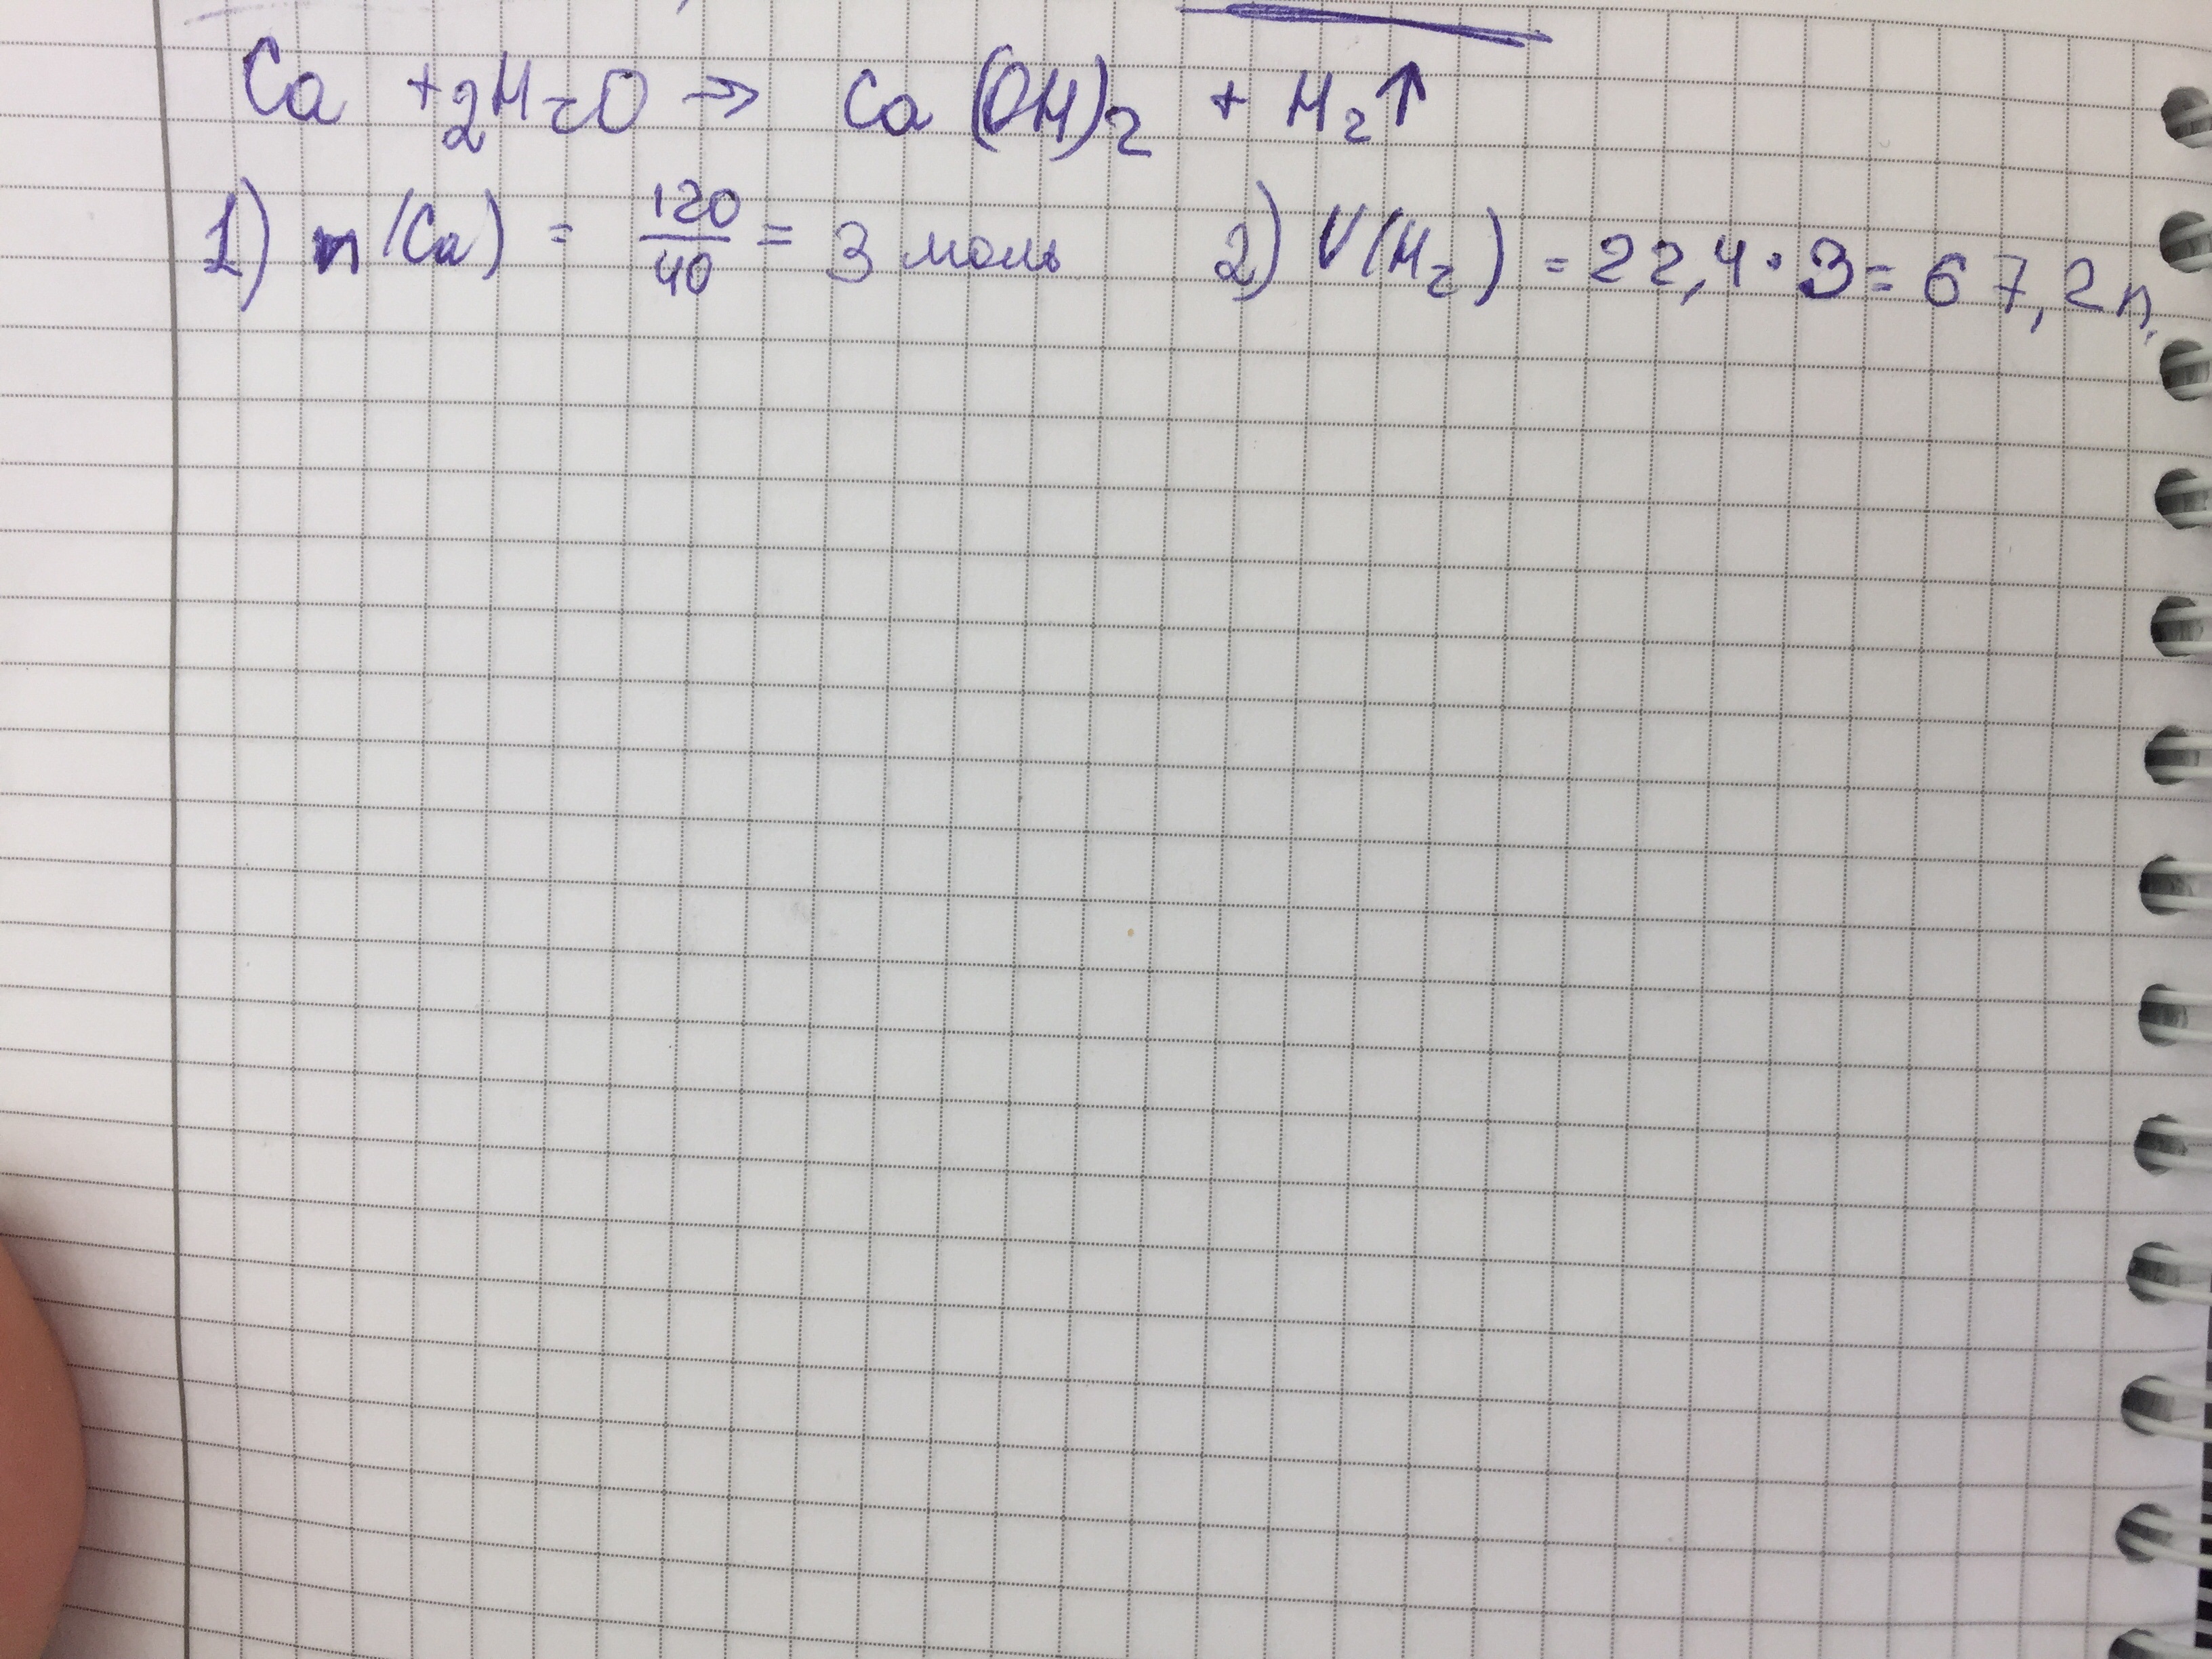 Ca + 2H₂O → Ca(OH)₂ + H₂↑
1) n(Ca) = 120/40 = 3 моль 2) V(H₂) = 22,4·3 = 67,2л.